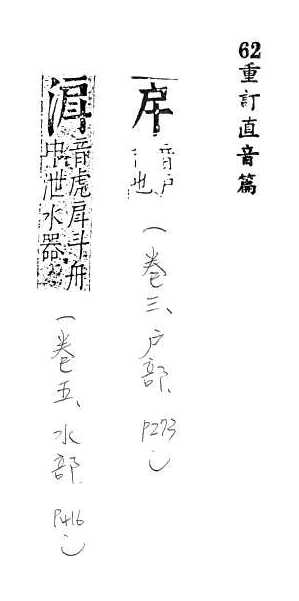 62重訂直音篇
戽 音戶
斗也
（卷三、戶部、P273）
音虎戽斗舟
中泄水器
（卷五、水部 P416）